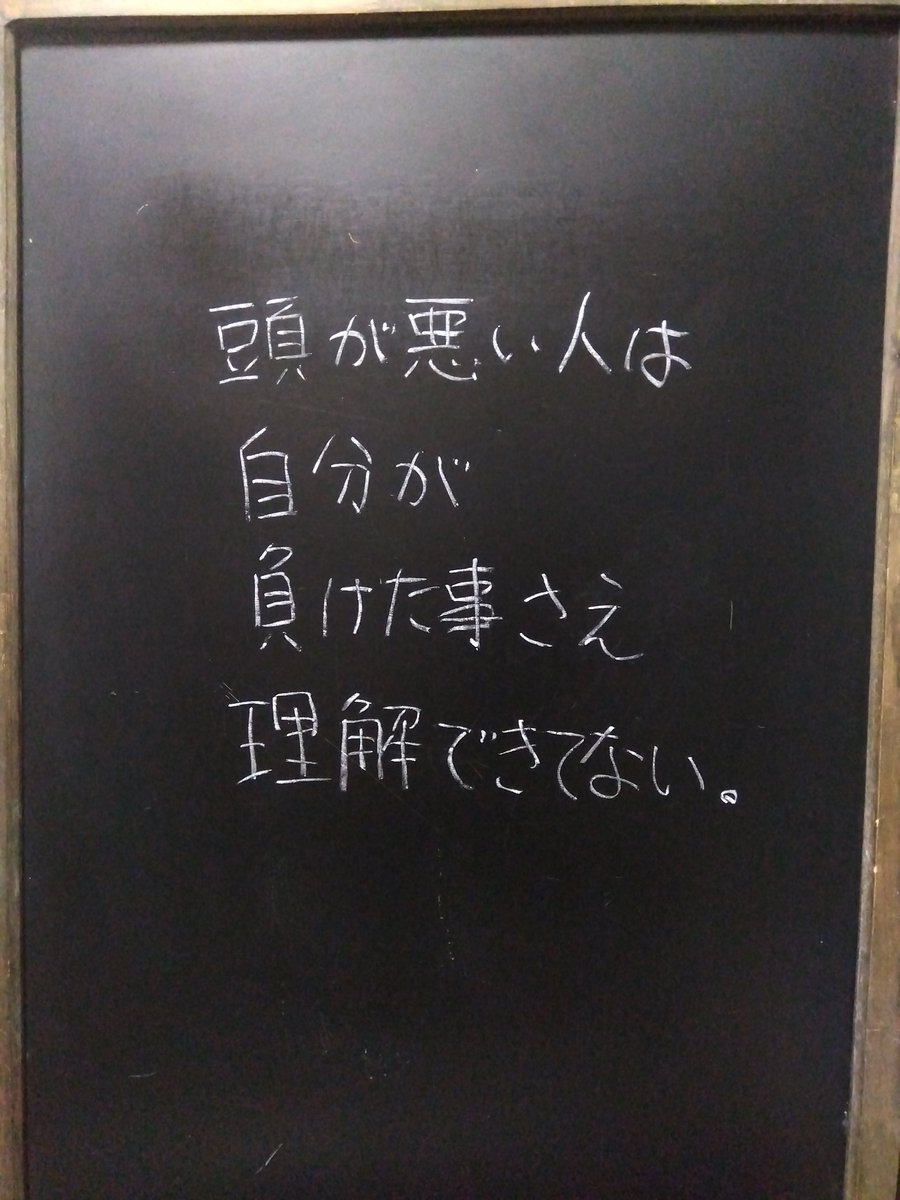 頭が悪い人は
自分が
負けた事さえ
理解できてない。